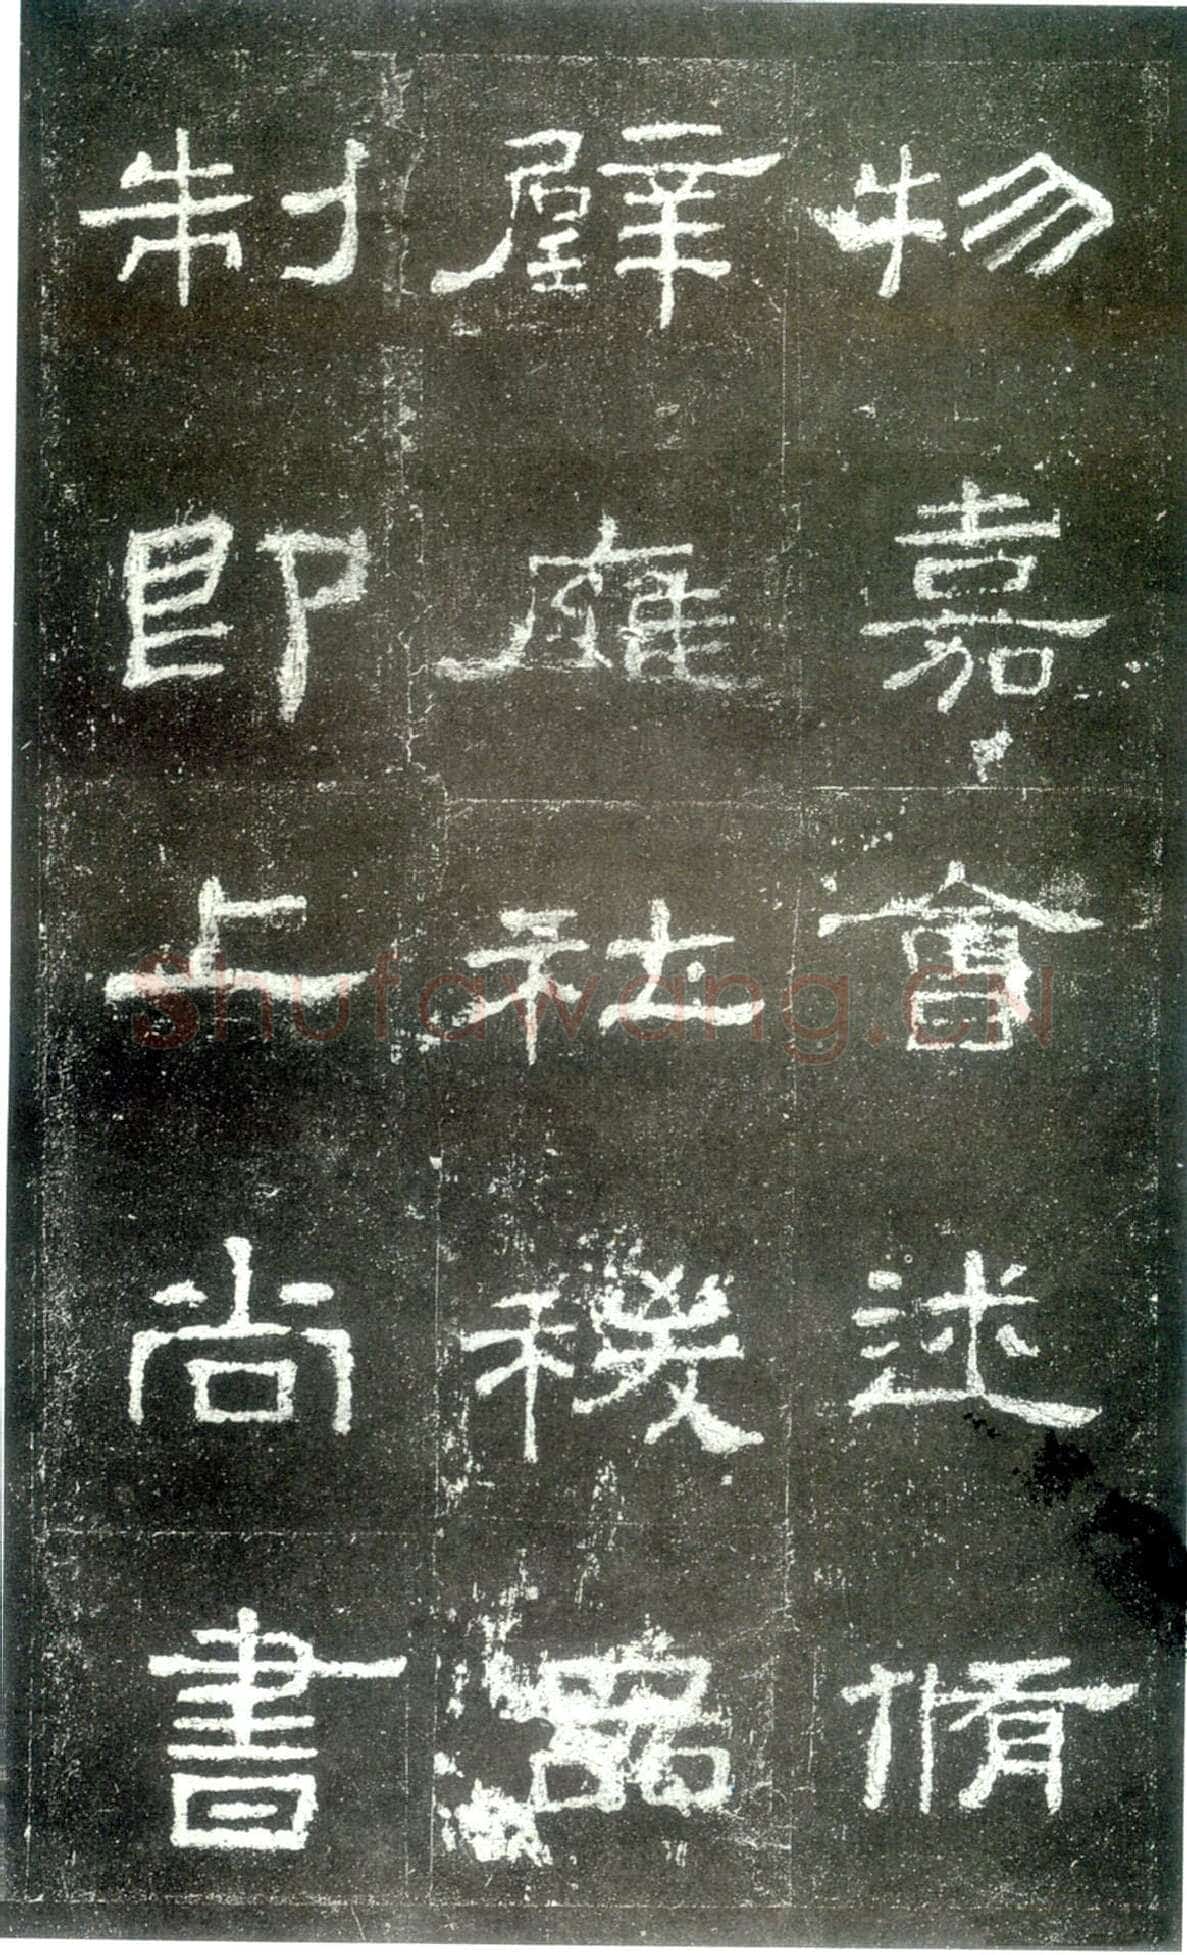 物嘉會述脩
璧廱社稷品
制即上尚書
Shufawang.CN